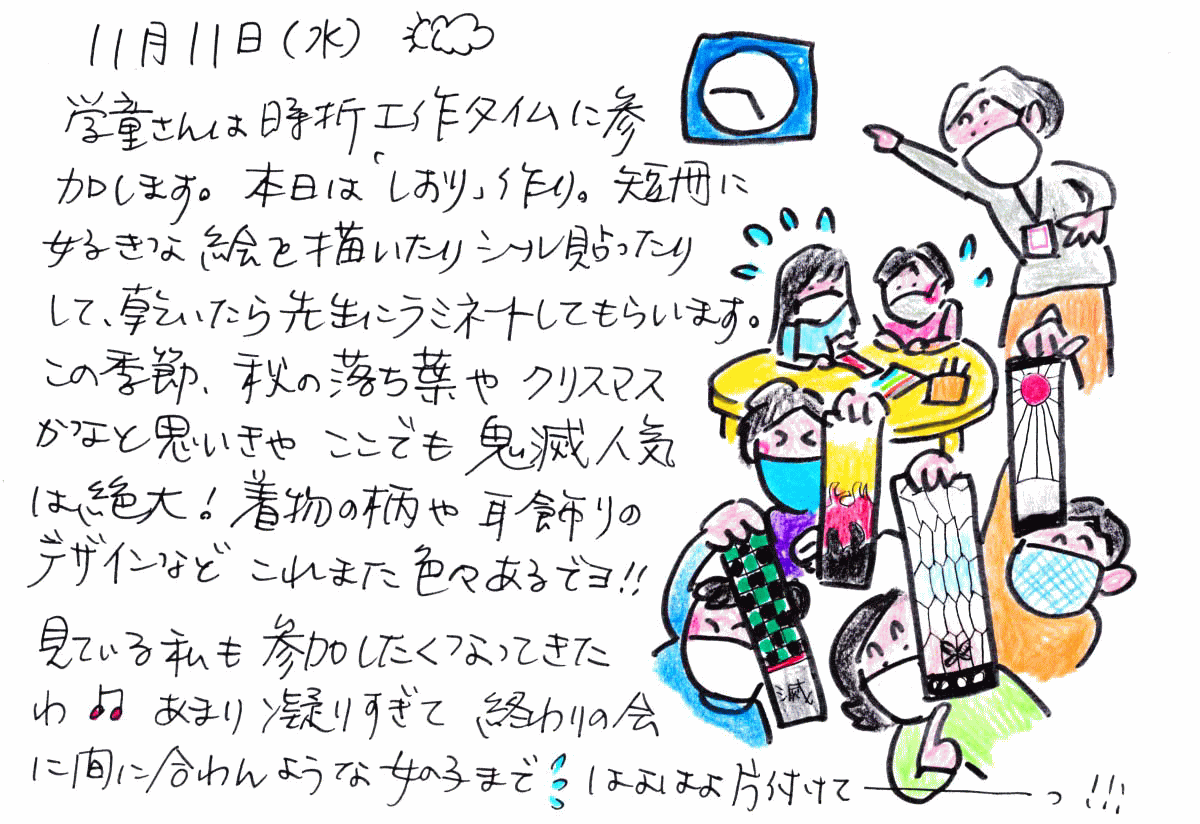 11月11日(水)
学童さんは時折工作タイムに参
加します。本日は「しおり」作り。短冊に
好きな絵を描いたりシール貼ったり
して、乾いたら先生にラミネートしてもらいます。
この季節、秋の落ち葉やクリスマス
かなと思いきやここでも鬼滅人気
は絶大!着物の柄や耳飾りの
デザインなどこれまた色々あるでヨ!!
見ている私も参加したくなってきた
わ♫あまり凝りすぎて終わりの会
に間に合わんような女の子まで
はよはよ片付けて――っ!!!
滅